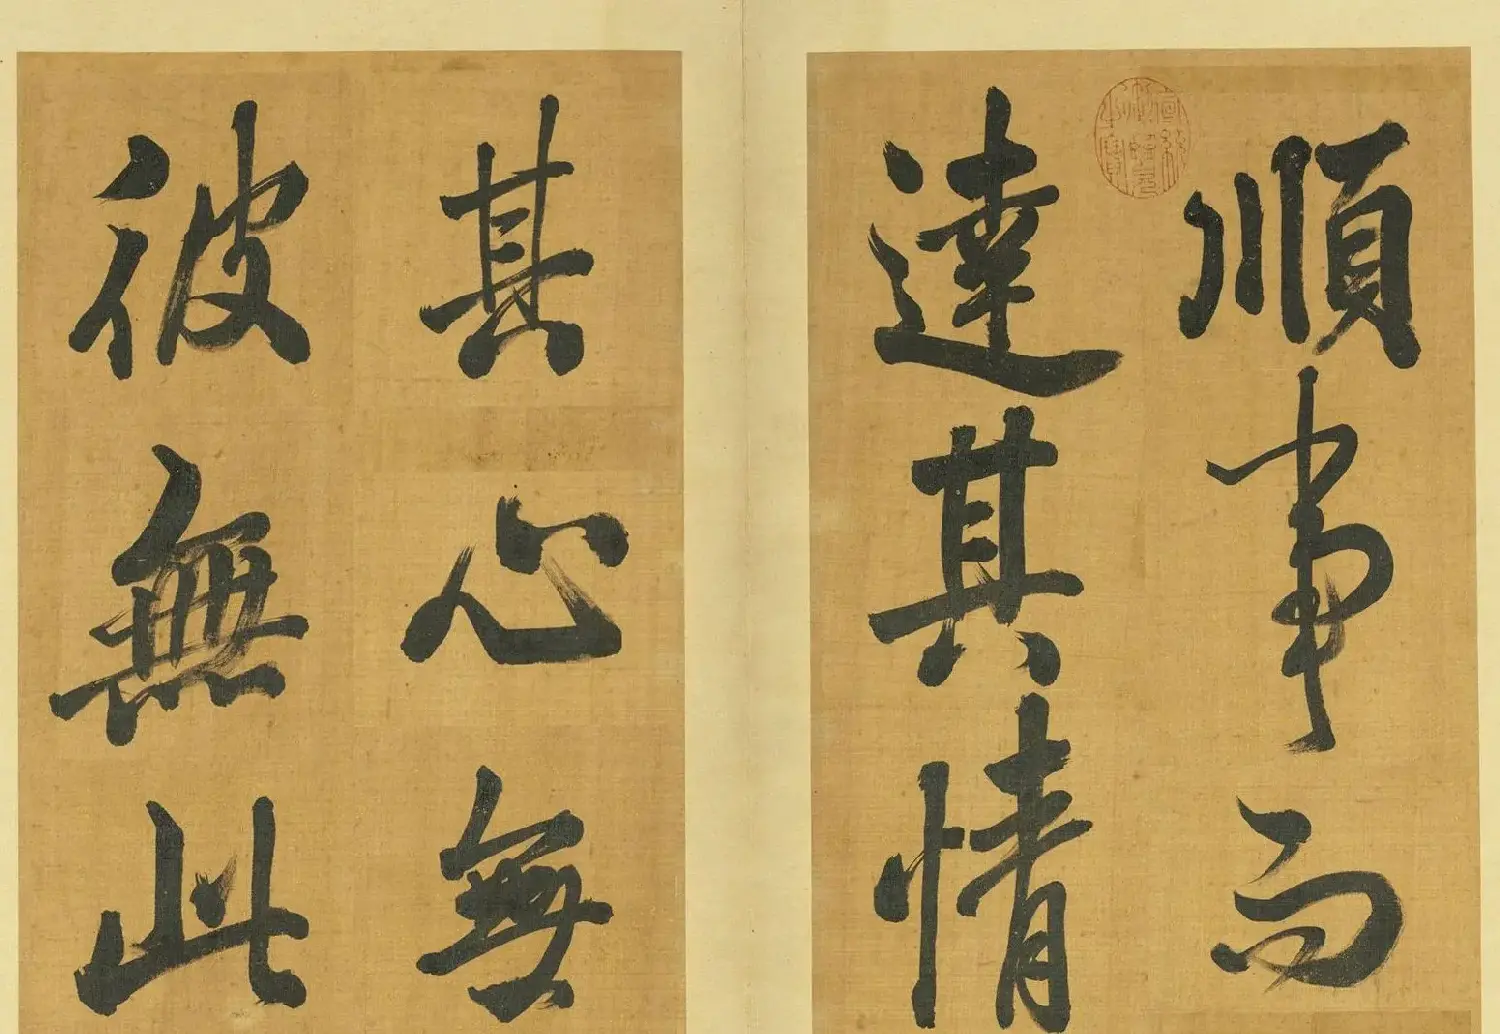 順事而
達其情
其心無
彼無此